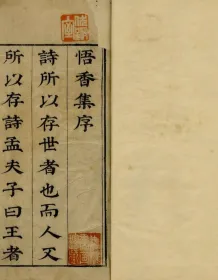 悟香集序
詩所以存世者也而人又
所以存詩孟夫子曰王者